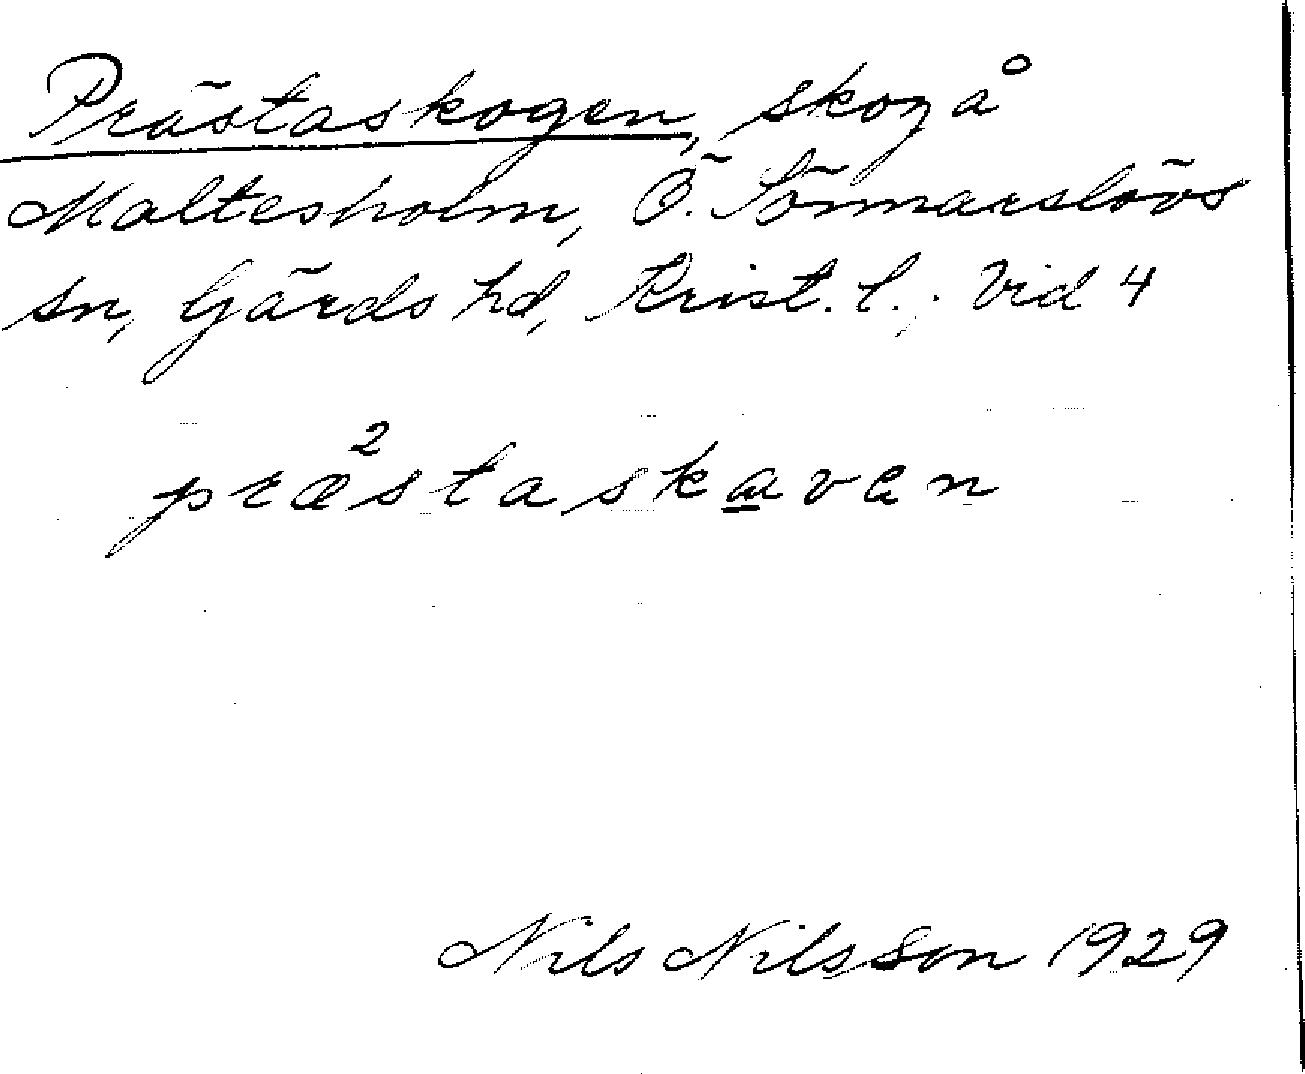 Prästaskogen, skog å
Maltesholm, Ö. Sönnarslövs
sn, Gärds hd, Krist. l.; Vid 4
præ²staskavan
Nils Nilsson 1929